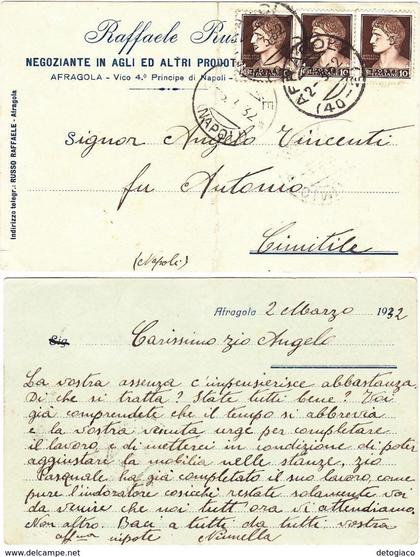 Raffaele Rus
NEGOZIANTE IN AGLI ED ALTRI PRODOT
AFRAGOLA - Vico 4.º Principe di Napoli -
Indirizzo telegr.: RUSSO RAFFAELE - Afragola
10 10 10
AFRAGOLA
(NAPOLI)
Signor Angelo Vincenti
fu Antonio
Cimitile
(Napoli)
Afragola 2 Marzo 1932
Sig. Carissimo zio Angelo
La vostra assenza c'impensierisce abbastanza
Di che si tratta? State tutti bene? Voi
già comprendete che il tempo si abbrevia
e la vostra venuta urge per completare
il lavoro, e di metterci in condizione di poter
aggiustare la mobilia nelle stanze, zio
Pasquale ha già completato il suo lavoro, come
pure l'indoratore cosicchè restate solamente voi
da venire che noi tutt'ora vi attendiamo.
Non altro. Baci a tutti da tutti vostra
aff.ma nipote Ninella
detogiaco